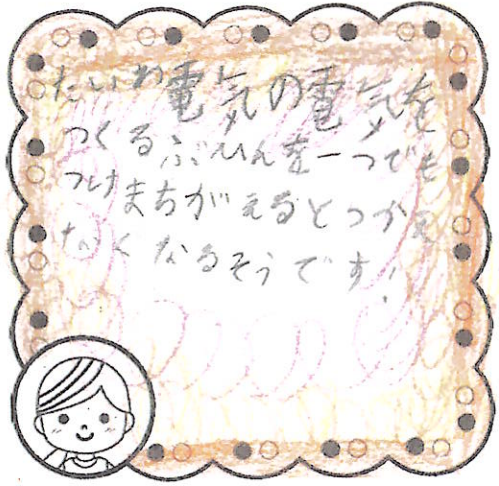 たいわ電気の電気を
つくるぶひんを一つでも
つけまちがえるとつかえ
なくなるそうです!